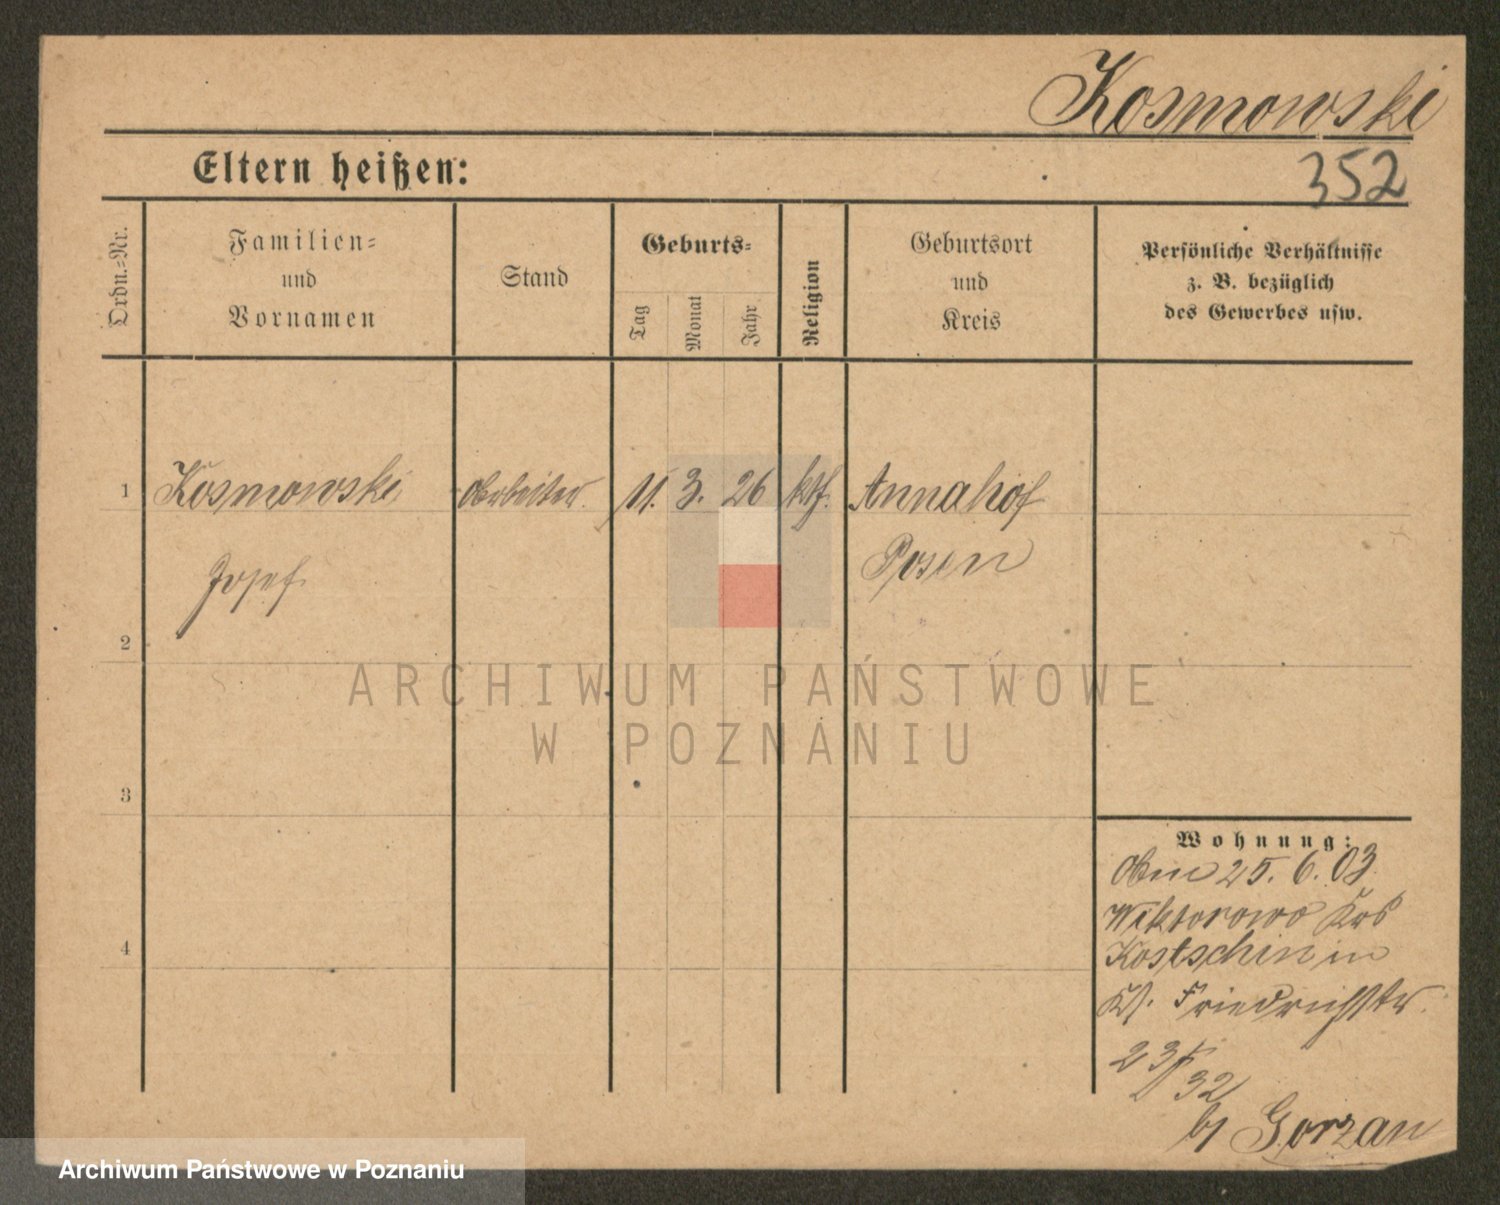 Kosmowski
Eltern heißen:
352
Ordn.-Nr.
Familien-
und
Vornamen
Stand
Geburts-
Tag
Monat
Jahr
Religion
Geburtsort
und
Kreis
Persönliche Verhältnisse
z. B. bezüglich
des Gewerbes usw.
1 Kosmowski Arbeiter 11. 3. 26 kth. Annahof
Josef Posen
2
ARCHIWUM PAŃSTWOWE
W POZNANIU
3
Wohnung:
25. 6. 03
Wiktorowo Krs
4
Kostschin in
Friedrichstr.
23/32
bj Gorzan
Archiwum Państwowe w Poznaniu